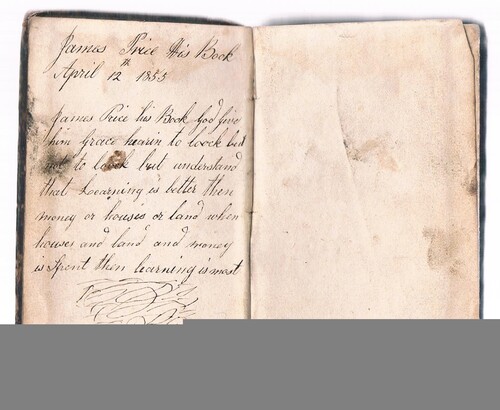 James Price His Book
April 12th 1855
James Price his Book God Give
him Grace hearin to loock but
not to loock but understand
that Learning is better then
money or houses or land when
houses and land and money
is Spent then learning is most